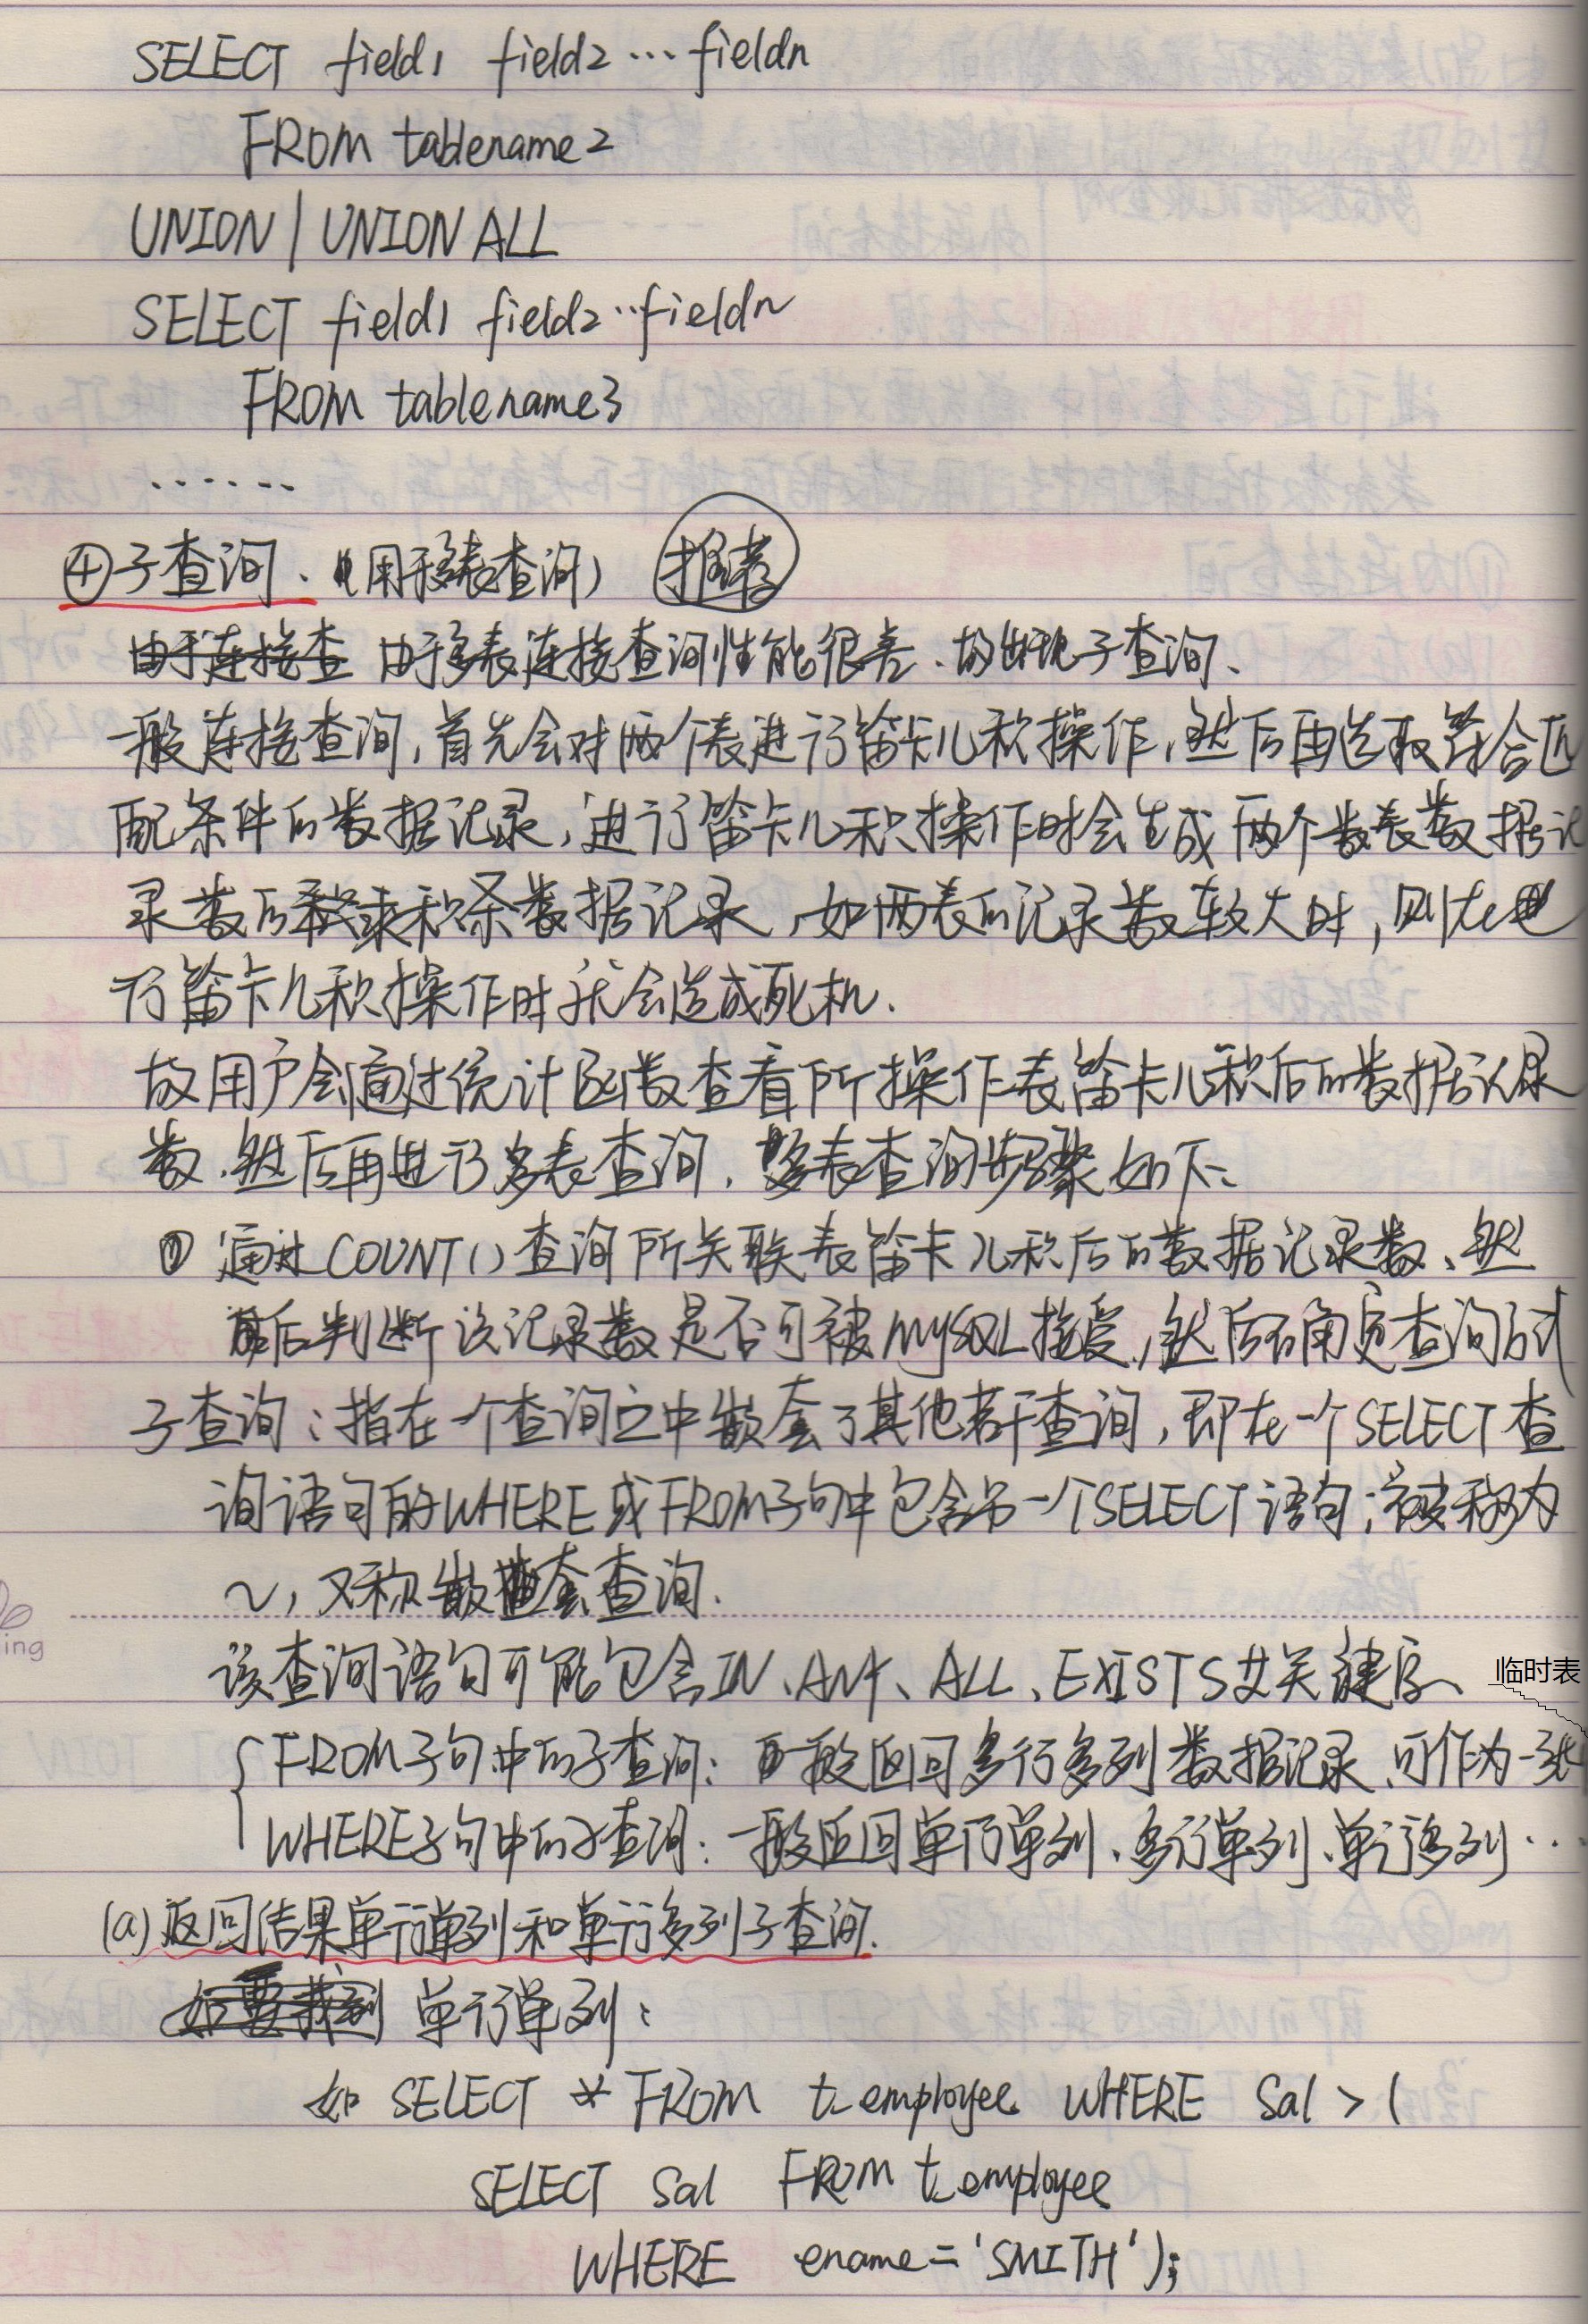 SELECT field1 field2 … fieldn
FROM tablename2
UNION | UNION ALL
SELECT field1 field2 … fieldn
FROM tablename3
......
④子查询、(用于多表查询) 推荐
由于连接查 由于多表连接查询性能很差、故出现子查询、
一般连接查询,首先会对两个表进行笛卡儿积操作,然后再选取符合匹
配条件的数据记录,进行笛卡儿积操作时会生成两个数表数据记
录数的乘积条数据记录,如两表的记录数较大时,则在进
行笛卡儿积操作时就会造成死机.
故用户会通过统计函数查看所操作表笛卡儿积后的数据记录
数.然后再进行多表查询.多表查询步骤如下:
① 通过COUNT()查询所关联表笛卡儿积后的数据记录数、然
后判断该记录数是否可被MySQL接受,然后确定查询方式
子查询:指在一个查询之中嵌套了其他若干查询,即在一个SELECT查
询语句的WHERE或FROM子句中包含另一个SELECT语句;被称为
~,又称嵌套查询.
该查询语句可能包含IN、ANY、ALL、EXISTS等关键字、 临时表
FROM子句中的子查询:一般返回多行多列数据记录、可作为一张
WHERE子句中的子查询:一般返回单行单列、多行单列、单行多列…
(a)返回结果单行单列和单行多列子查询.
如要找到 单行单列:
如 SELECT * FROM t_employee WHERE Sal > (
SELECT Sal FROM t_employee
WHERE ename='SMITH');
ing